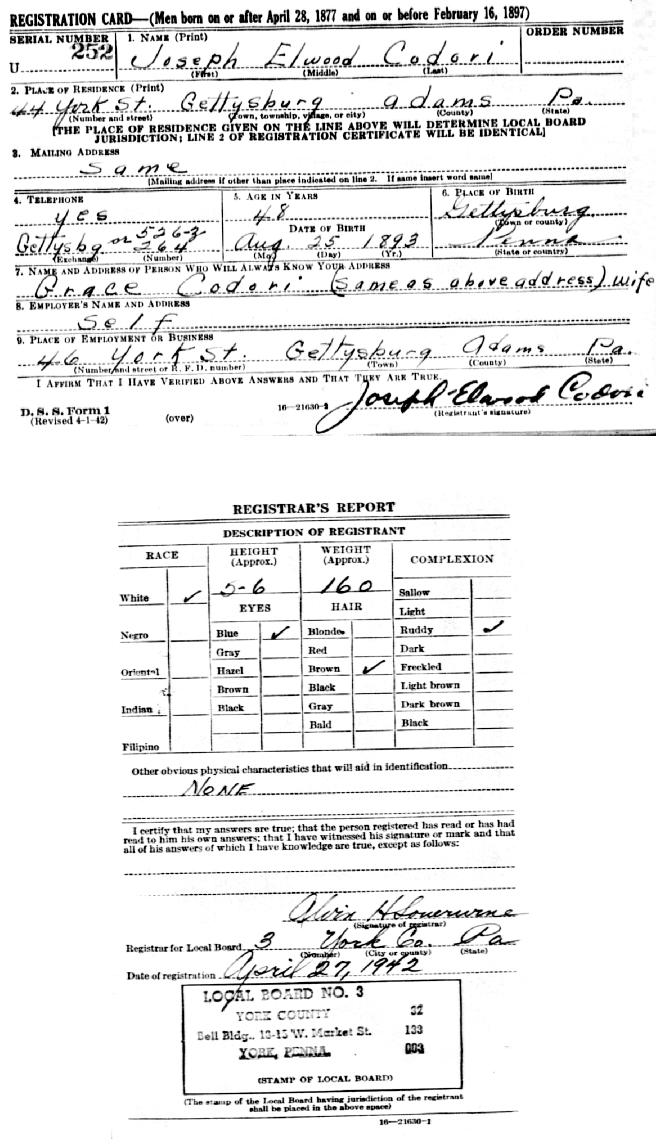 REGISTRATION CARD—(Men born on or after April 28, 1877 and on or before February 16, 1897)
SERIAL NUMBER 1. NAME (Print) ORDER NUMBER
U 252 Joseph Elwood Codori
(First) (Middle) (Last)
2. PLACE OF RESIDENCE (Print)
44 York St. Gettysburg Adams Pa.
(Number and street) (Town, township, village, or city) (County) (State)
[THE PLACE OF RESIDENCE GIVEN ON THE LINE ABOVE WILL DETERMINE LOCAL BOARD
JURISDICTION; LINE 2 OF REGISTRATION CERTIFICATE WILL BE IDENTICAL]
3. MAILING ADDRESS
Same
[Mailing address if other than place indicated on line 2. If same insert word same]
4. TELEPHONE 5. AGE IN YEARS 6. PLACE OF BIRTH
yes 48 Gettysburg
(Town or county)
DATE OF BIRTH
Gettysbg or 526-Z 264 Aug. 25 1893 Penna
(Exchange) (Number) (Mo.) (Day) (Yr.) (State or country)
7. NAME AND ADDRESS OF PERSON WHO WILL ALWAYS KNOW YOUR ADDRESS
Grace Codori (same as above address) wife
8. EMPLOYER'S NAME AND ADDRESS
Self
9. PLACE OF EMPLOYMENT OR BUSINESS
46 York St. Gettysburg Adams Pa.
(Number and street or R. F. D. number) (Town) (County) (State)
I AFFIRM THAT I HAVE VERIFIED ABOVE ANSWERS AND THAT THEY ARE TRUE.
Joseph Elwood Codori
D. S. S. Form 1 16—21630-2 (Registrant's signature)
(Revised 4-1-42) (over)
REGISTRAR'S REPORT
DESCRIPTION OF REGISTRANT
RACE HEIGHT (Approx.) WEIGHT (Approx.) COMPLEXION
White ✓ 5-6 160 Sallow
EYES HAIR Light
Negro Blue ✓ Blonde Ruddy ✓
Gray Red Dark
Oriental Hazel Brown ✓ Freckled
Brown Black Light brown
Indian Black Gray Dark brown
Bald Black
Filipino
Other obvious physical characteristics that will aid in identification
NONE
I certify that my answers are true; that the person registered has read or has had
read to him his own answers; that I have witnessed his signature or mark and that
all of his answers of which I have knowledge are true, except as follows:
Alvin H
(Signature of registrar)
Registrar for Local Board 3 York Co. Pa
(Number) (City or county) (State)
Date of registration April 27, 1942
LOCAL BOARD NO. 3
YORK COUNTY 32
Bell Bldg., 13-15 W. Market St. 133
YORK, PENNA. 003
(STAMP OF LOCAL BOARD)
(The stamp of the Local Board having jurisdiction of the registrant
shall be placed in the above space)
16—21630-1